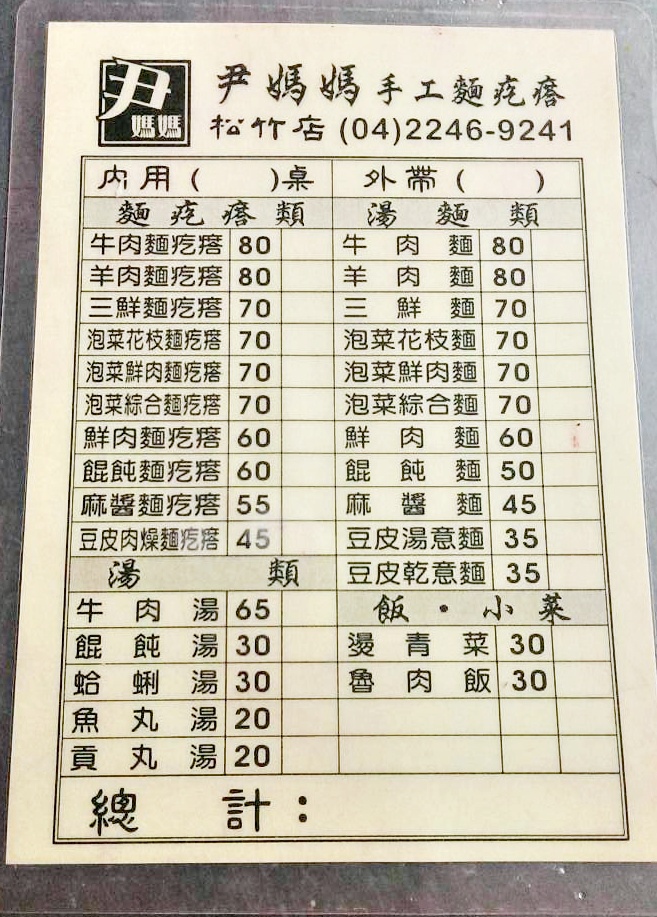 尹 媽媽
尹媽媽手工麵疙瘩
松竹店 (04)2246-9241
內用( )桌 外帶( )
麵疙瘩類 湯麵類
牛肉麵疙瘩 80 牛肉麵 80
羊肉麵疙瘩 80 羊肉麵 80
三鮮麵疙瘩 70 三鮮麵 70
泡菜花枝麵疙瘩 70 泡菜花枝麵 70
泡菜鮮肉麵疙瘩 70 泡菜鮮肉麵 70
泡菜綜合麵疙瘩 70 泡菜綜合麵 70
鮮肉麵疙瘩 60 鮮肉麵 60
餛飩麵疙瘩 60 餛飩麵 50
麻醬麵疙瘩 55 麻醬麵 45
豆皮肉燥麵疙瘩 45 豆皮湯意麵 35
湯類 豆皮乾意麵 35
牛肉湯 65 飯・小菜
餛飩湯 30 燙青菜 30
蛤蜊湯 30 魯肉飯 30
魚丸湯 20
貢丸湯 20
總計：